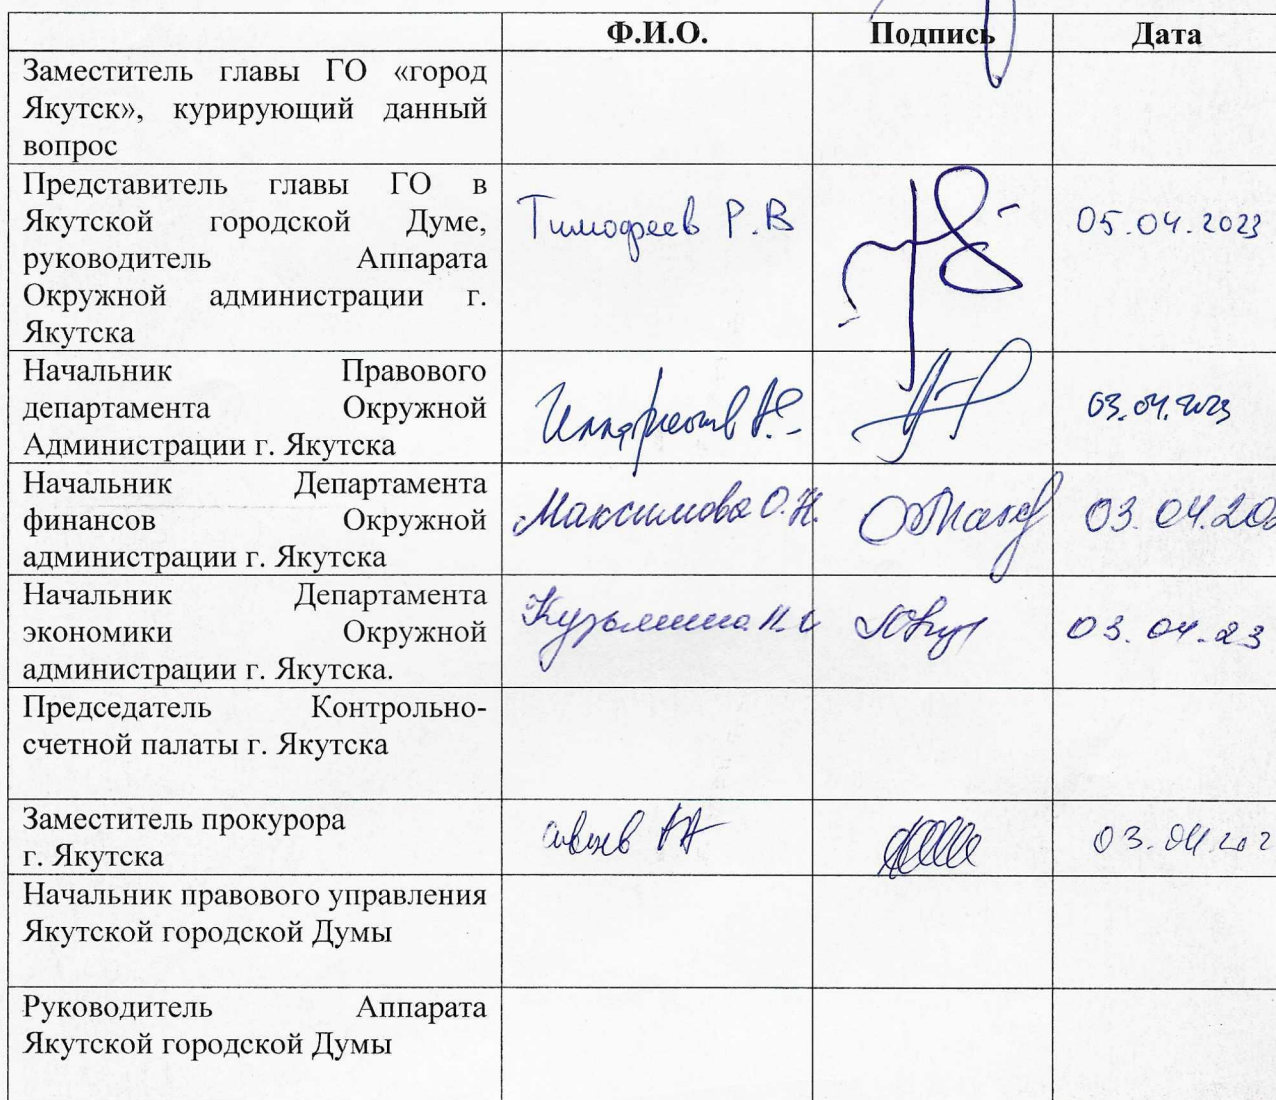 Ф.И.О. Подпись Дата
Заместитель главы ГО «город
Якутск», курирующий данный
вопрос
Представитель главы ГО в
Якутской городской Думе,
руководитель Аппарата
Окружной администрации г.
Якутска
Тимофеев Р.В 05.04.2023
Начальник Правового
департамента Окружной
Администрации г. Якутска
03.04.2023
Начальник Департамента
финансов Окружной
администрации г. Якутска
Максимова О.Н. 03.04.202
Начальник Департамента
экономики Окружной
администрации г. Якутска.
Кузьмина 03.04.23
Председатель Контрольно-
счетной палаты г. Якутска
Заместитель прокурора
г. Якутска
03.04.202
Начальник правового управления
Якутской городской Думы
Руководитель Аппарата
Якутской городской Думы